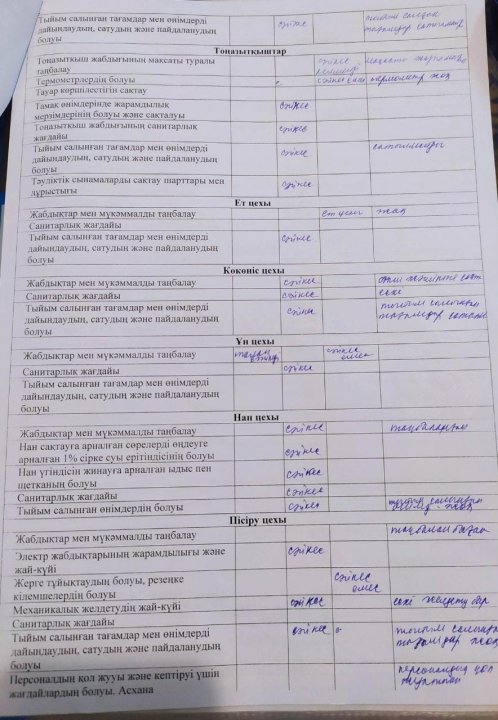 Тыйым салынған тағамдар мен өнімдерді
дайындаудың, сатудың және пайдаланудың
болуы
сәйкес
Тоңазытқыштар
Тоңазытқыш жабдығының мақсаты туралы
таңбалау
сәйкес
Термометрлердің болуы
термометр жоқ
Тауар көршілестігін сақтау
Тамақ өнімдерінде жарамдылық
мерзімдерінің болуы және сақталуы
сәйкес
Тоңазытқыш жабдығының санитарлық
жағдайы
сәйкес
Тыйым салынған тағамдар мен өнімдерді
дайындаудың, сатудың және пайдаланудың
болуы
сәйкес
сатылмайды
Тәуліктік сынамаларды сақтау шарттары мен
дұрыстығы
сәйкес
Ет цехы
Жабдықтар мен мүкәммалды таңбалау
жоқ
Санитарлық жағдайы
Тыйым салынған тағамдар мен өнімдерді
дайындаудың, сатудың және пайдаланудың
болуы
сәйкес
Көкөніс цехы
Жабдықтар мен мүкәммалды таңбалау
сәйкес
Санитарлық жағдайы
сәйкес
Тыйым салынған тағамдар мен өнімдерді
дайындаудың, сатудың және пайдаланудың
болуы
сәйкес
тыйым салынған
тағамдар
Ұн цехы
Жабдықтар мен мүкәммалды таңбалау
сәйкес
емес
Санитарлық жағдайы
сәйкес
Тыйым салынған тағамдар мен өнімдерді
дайындаудың, сатудың және пайдаланудың
болуы
Нан цехы
Жабдықтар мен мүкәммалды таңбалау
сәйкес
Нан сақтауға арналған сөрелерді өңдеуге
арналған 1% сірке суы ерітіндісінің болуы
сәйкес
Нан үгіндісін жинауға арналған ыдыс пен
щетканың болуы
сәйкес
Санитарлық жағдайы
сәйкес
Тыйым салынған өнімдердің болуы
сәйкес
тыйым салынған
жоқ
Пісіру цехы
Жабдықтар мен мүкәммалды таңбалау
Электр жабдықтарының жарамдылығы және
жай-күйі
сәйкес
Жерге тұйықтаудың болуы, резеңке
кілемшелердің болуы
сәйкес
емес
Механикалық желдетудің жай-күйі
сәйкес
желдету бар
Санитарлық жағдайы
Тыйым салынған тағамдар мен өнімдерді
дайындаудың, сатудың және пайдаланудың
болуы
сәйкес
тыйым салынған
тағамдар жоқ
Персоналдың қол жууы және кептіруі үшін
жағдайлардың болуы. Асхана
персоналдың қол